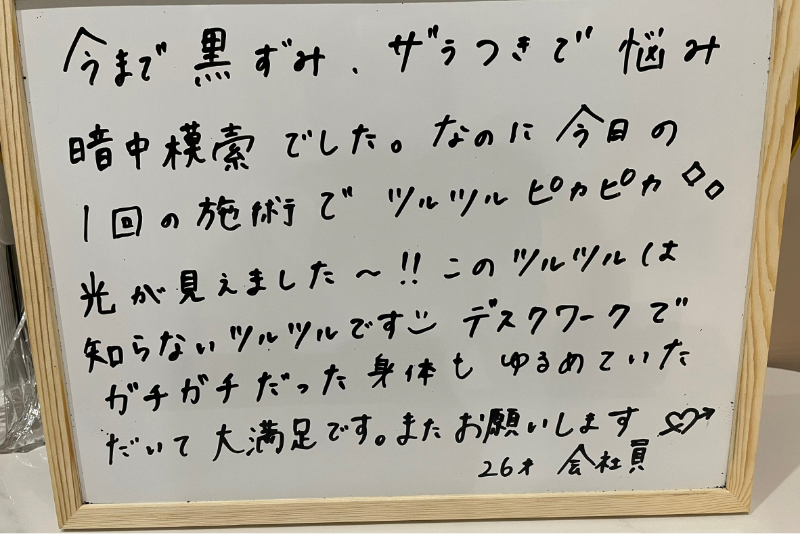 今まで黒ずみ、ザラつきで悩み
暗中模索でした。なのに今日の
1回の施術でツルツルピカピカ
光が見えました〜!!このツルツルは
知らないツルツルです デスクワークで
ガチガチだった身体もゆるめていた
だいて大満足です。またお願いします
26才 会社員